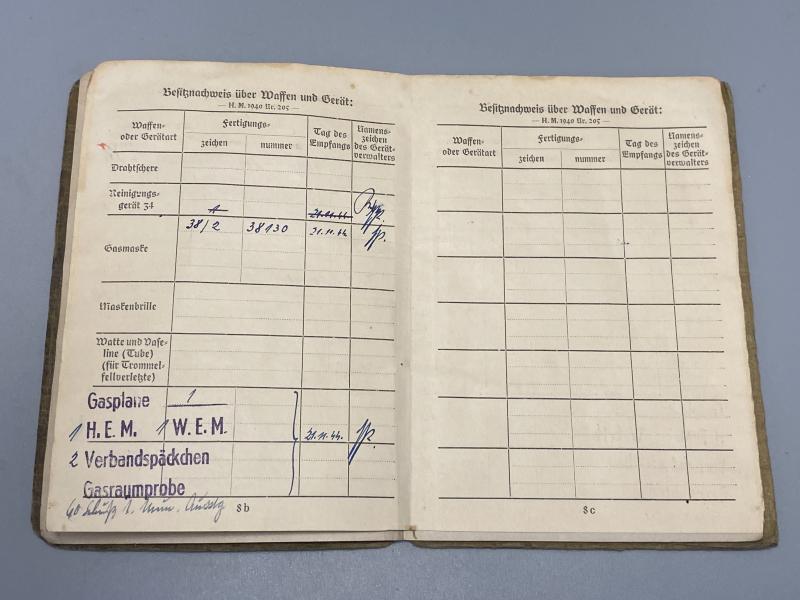 Besitznachweis über Waffen und Gerät:
— H. M. 1940 Nr. 205 —
Waffen-
oder Gerätart
Fertigungs-
zeichen
nummer
Tag des
Empfangs
Namens-
zeichen
des Gerät-
verwalters
Drahtschere
Reinigungs-
gerät 34
1
21.11.44
38/2
38130
21.11.44
Gasmaske
Maskenbrille
Watte und Vase-
line (Tube)
(für Trommel-
fellverletzte)
Gasplane 1
1 H.E.M. 1 W.E.M.
21.11.44.
2 Verbandspäckchen
Gasraumprobe
60 Schuß
8 b
Besitznachweis über Waffen und Gerät:
— H. M. 1940 Nr. 205 —
Waffen-
oder Gerätart
Fertigungs-
zeichen
nummer
Tag des
Empfangs
Namens-
zeichen
des Gerät-
verwalters
8 c